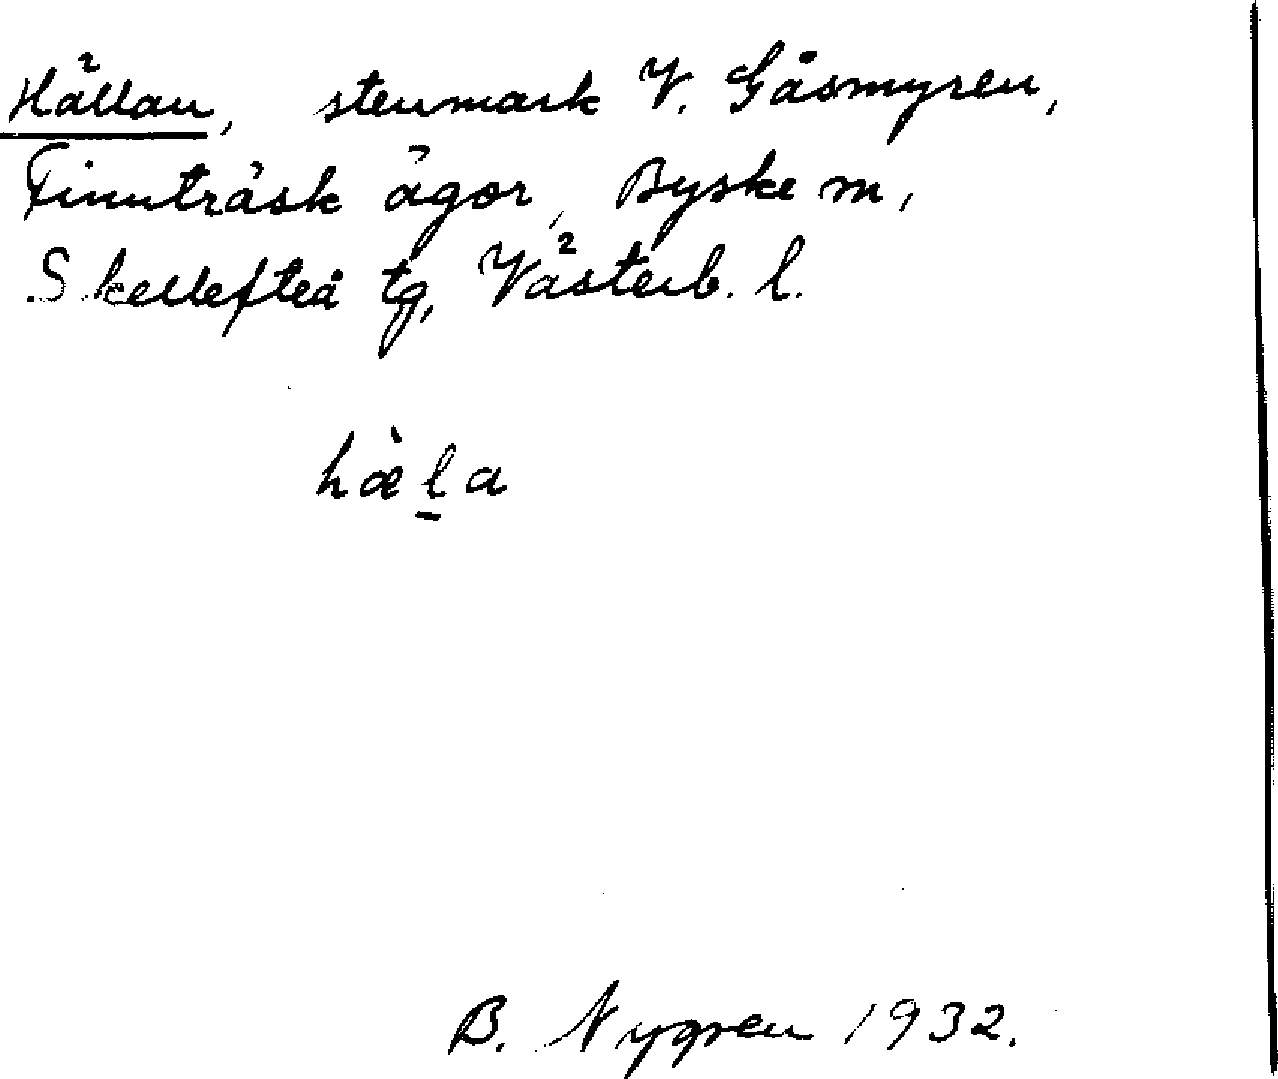 Hällan, stenmark V. Gåsmyren,
Finnträsk ägor, Byske sn,
Skellefteå tg, Västerb. l.
hæ̀l̠a
B. Nygren 1932.